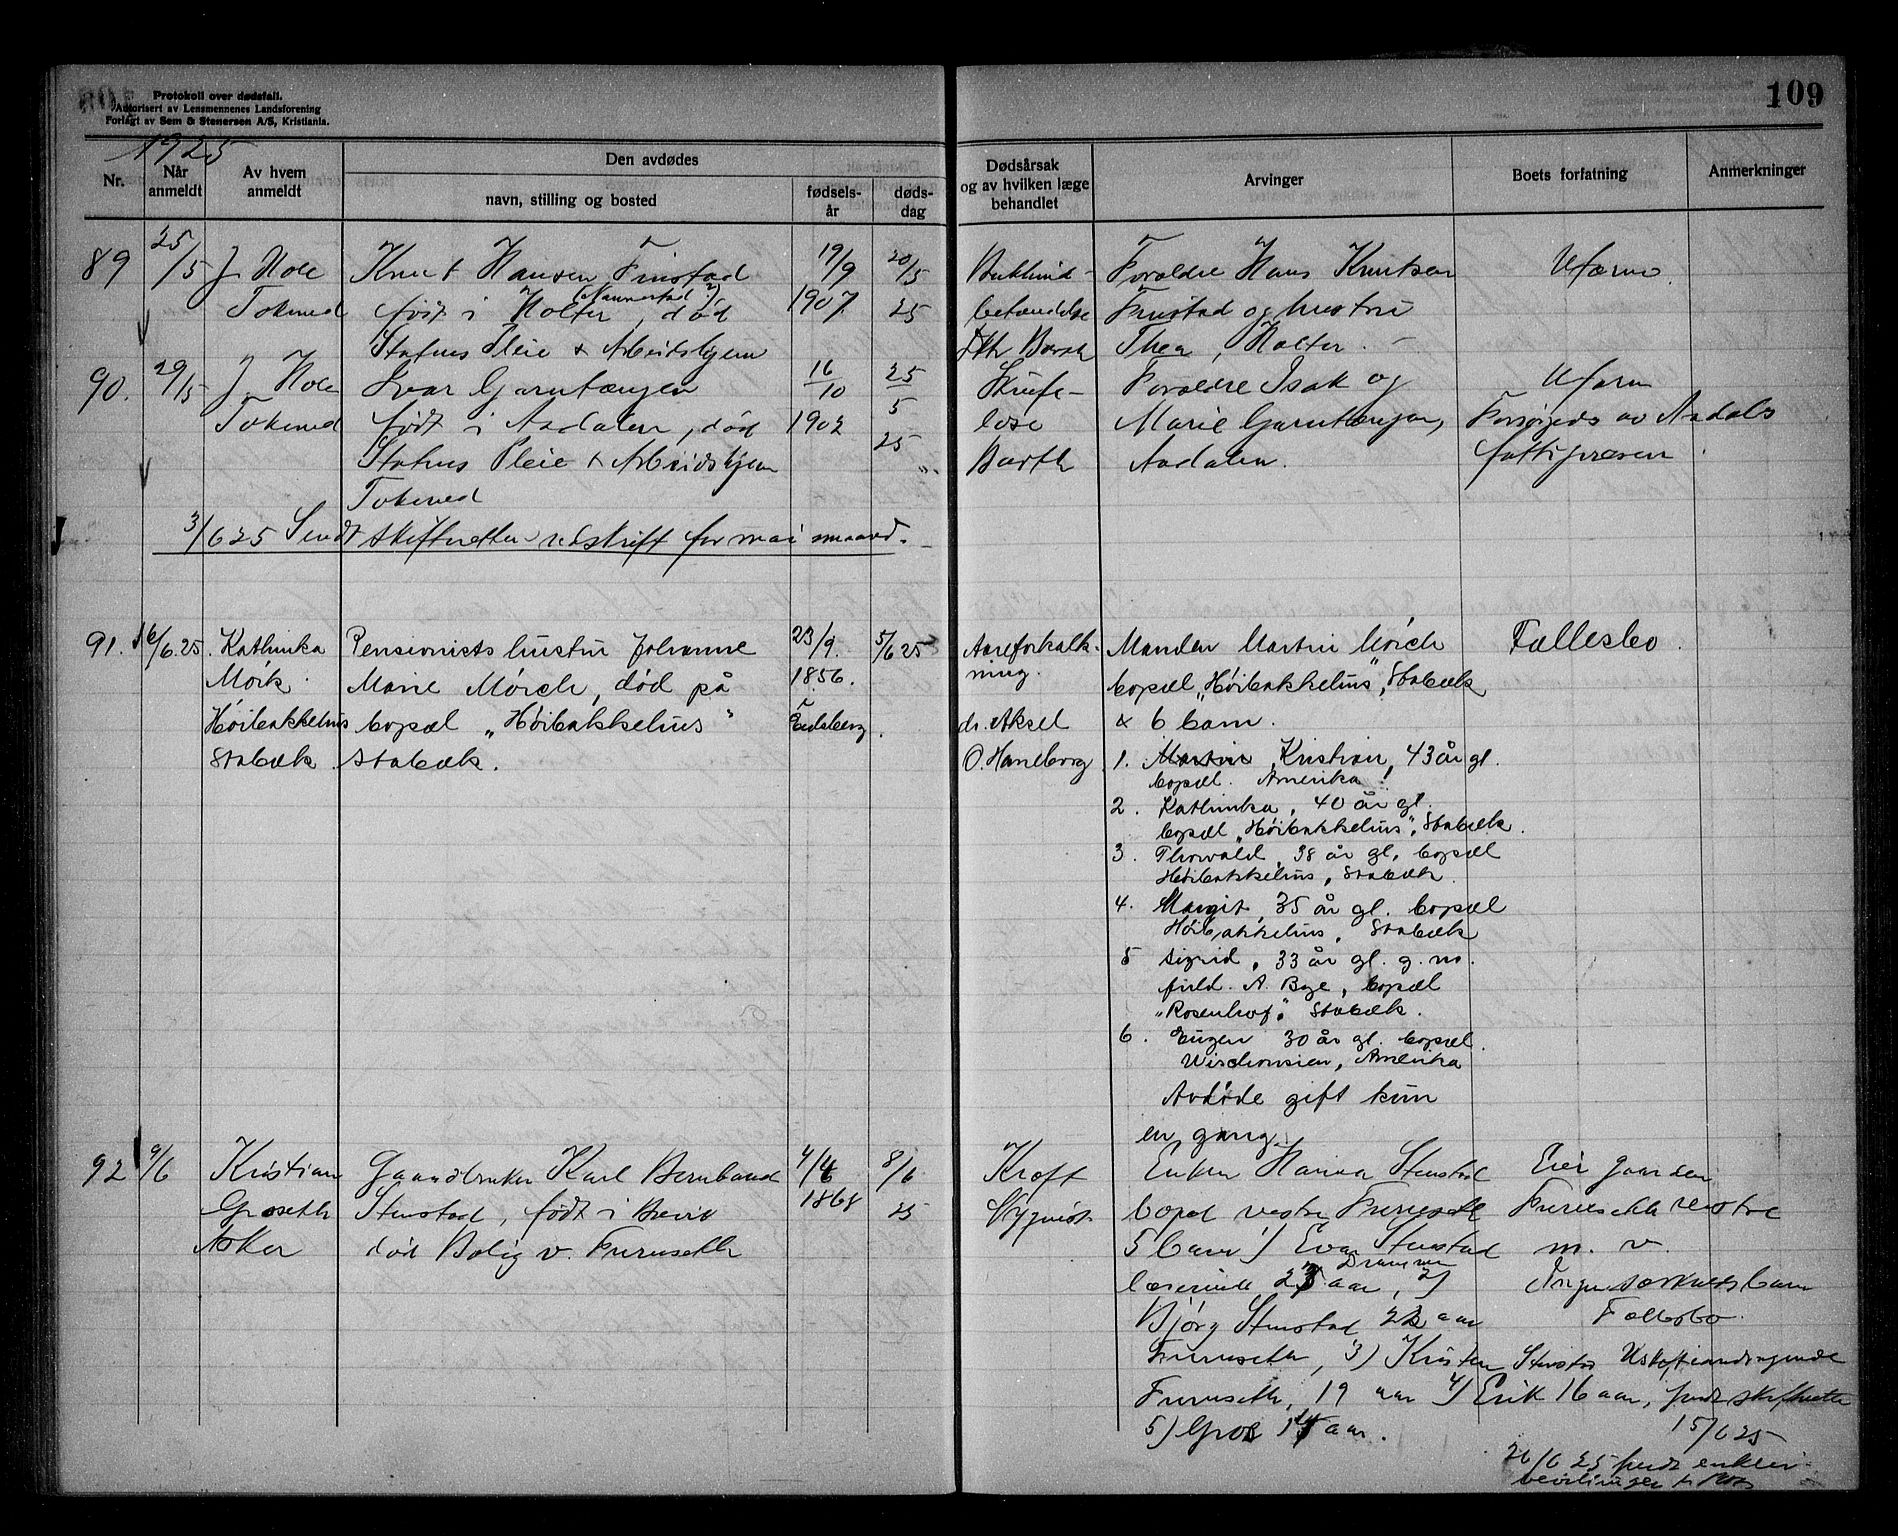 109
Protokoll over dødsfall.
Autorisert av Lensmennenes Landsforening
Forlagt av Sem & Stenersen A/S, Kristiania.
1925
Nr.
Når anmeldt
Av hvem anmeldt
Den avdødes
navn, stilling og bosted
fødsels-år
døds-dag
Dødsårsak og av hvilken læge behandlet
Arvinger
Boets forfatning
Anmerkninger
89 25/5 J. Hole Knut Hansen Finstad 19/9 20/5
Tokerud født i Holter (Nannestad), død 1907. 25
Statens Pleie & Arbeidshjem
Bukhind-
betændelse
Dr Barth
Foreldre Hans Knutsen
Finstad og hustru
Thea, Holter. -
Uform.
90. 29/5 J. Hole Ivar Garntangen 16/10 25
Tokerud født i Aadalen, død 1902 5
Statens Pleie & Arbeidshjem 25
Tokerud
Skrofe-
lose
Barth
Foreldre Isak og
Marie Garntangen,
Aadalen.
Uform
Forsørgeds av Aadals
fattigvæsen
3/6 25 Sendt skifteretten utskrift for mai maaned.
91. 6/6.25. Kathinka Pensionists hustru Johanne 23/9. 5/6 25
Mörk. Marie Mörch, död på 1856.
Höibakkehus bopæl „Höibakkehus" Eidsberg.
Stabæk. Stabæk.
Aareforkalk-
ning.
dr. Aksel
O. Haneborg
Manden Martin Mörch
bopæl „Höibakkehus", Stabæk
& 6 barn.
1. Martin Kristian, 43 år gl.
bopæl. Amerika!
2. Kathinka, 40 år gl.
bopæl „Höibakkehus", Stabæk.
3. Thorvald, 38 år gl. bopæl
Höibakkehus, Stabæk.
4. Margit, 35 år gl. bopæl
Höibakkehus, Stabæk
5 Sigrid, 33 år gl. g. m.
A. Bye, bopæl
„Rosenhof", Stabæk.
6. Eugen 30 år gl. bopæl.
Wischonsien, Amerika
Avdöde gift kun
en gang.
Fællesbo.
92 9/6 Kristian Gaardbruker Karl Bernhard 4/4 8/6
Groseth Stenstad, født i Brevik 1868 25
Asker død Bolig v. Furuseth
Kræft
Enken Hanna Stenstad
bopel vestre Furuseth
5 barn 1) Eva Stenstad
Drammen
lærerinde 25 aar, 2)
Bjørg Stenstad 22 aar
Furuseth, 3) Kristen Stenstad
Furuseth, 19 aar 4) Erik 16 aar,
5) Gro 14 aar.
Eier gaarden
Furuseth vestre
m. v.
Ingen særkuldsbarn
Fællesbo.
skifteretten
15/6 25
26/6 25 sendt enke-
bevilling